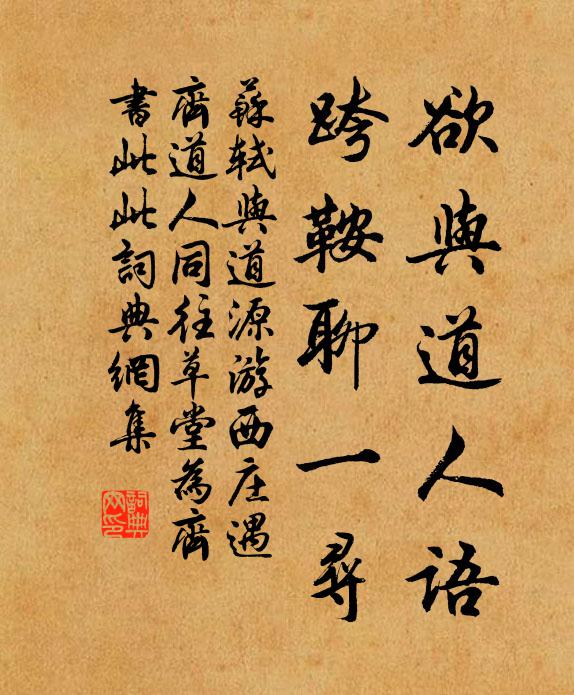 欲與道人語
跨鞍聊一尋
蘇軾與道源游西庄遇
齊道人同往草堂為齊
書此此詞典網集
詞典
网印